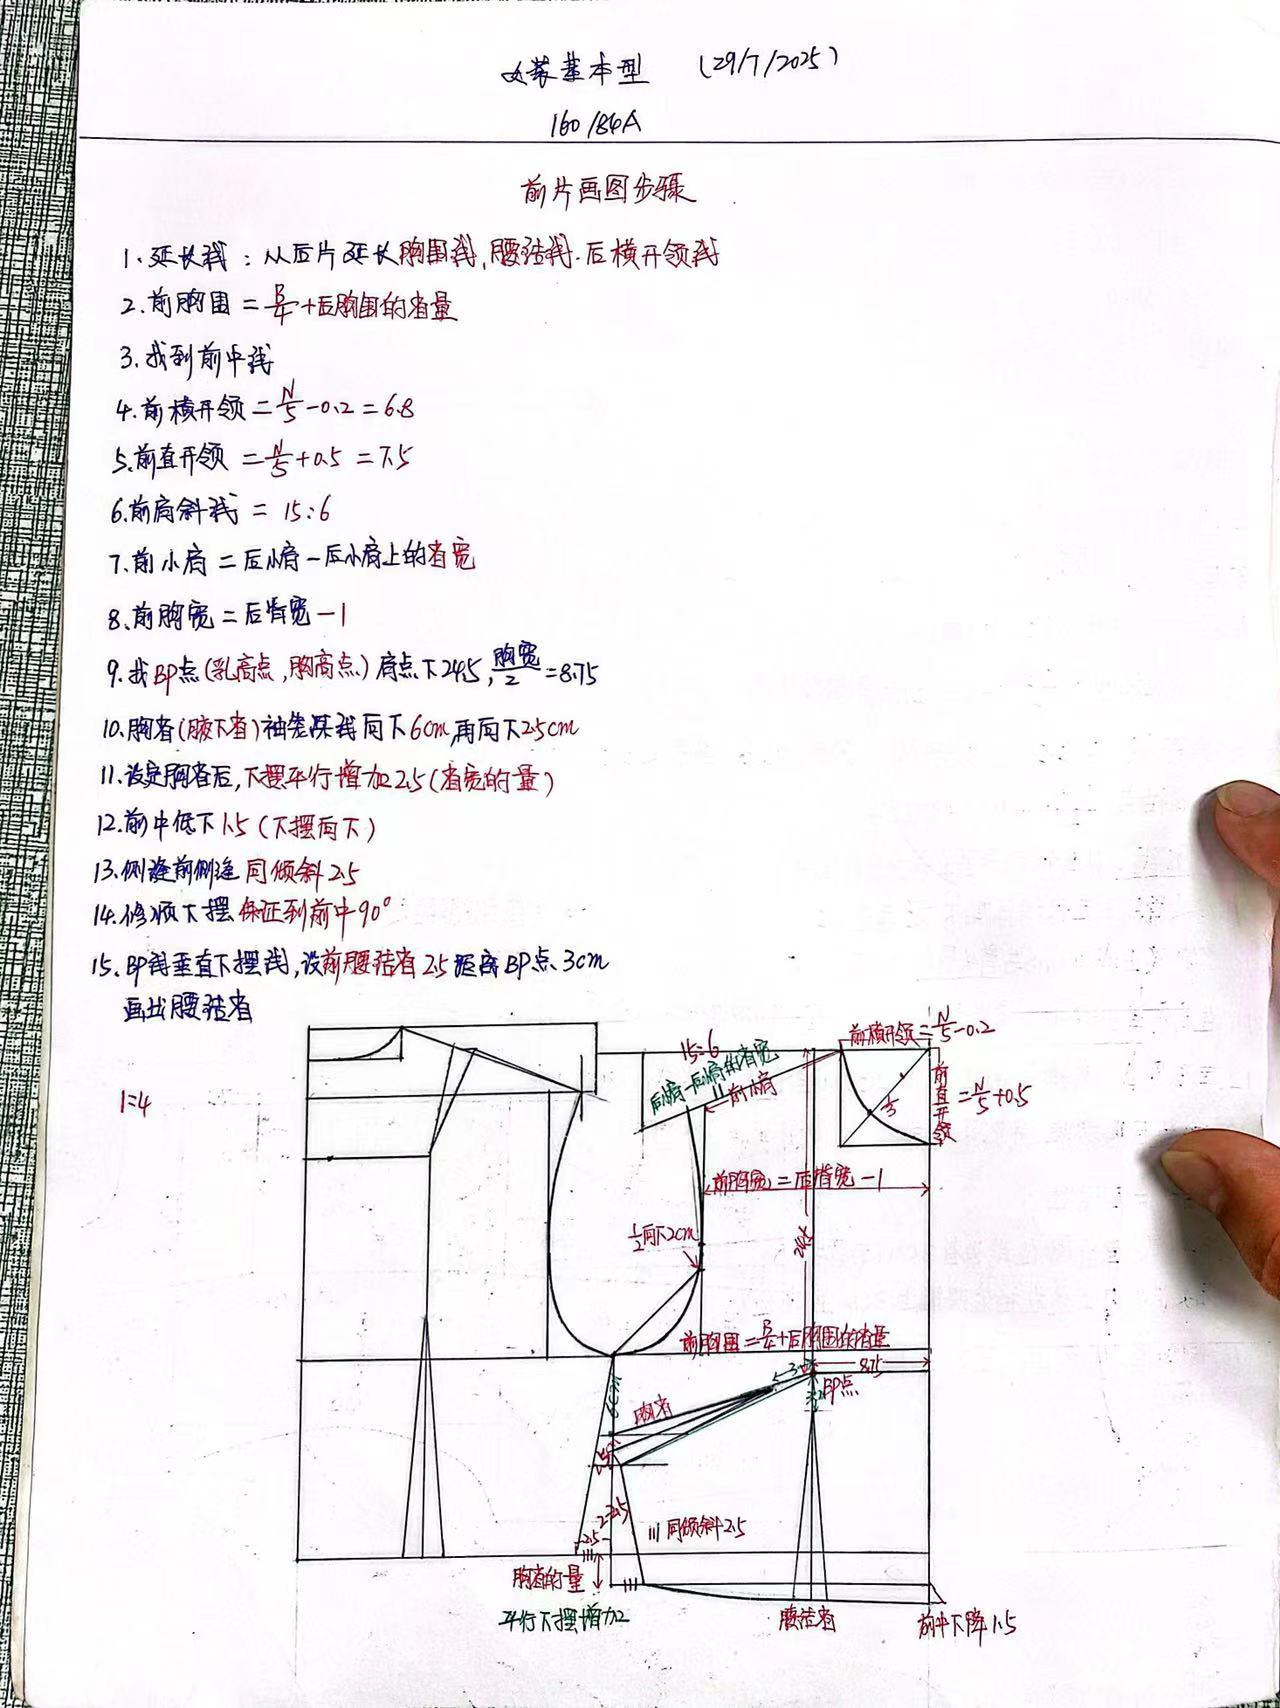 女装基本型 (29/7/2025)
160/84A
前片画图步骤
1、延长线：从后片延长胸围线、腰结线、后横开领线
2、前胸围=B/4+后胸围的省量
3、找到前中线
4、前横开领=N/5-0.2=6.8
5、前直开领=N/5+0.5=7.5
6、前肩斜线=15:6
7、前小肩=后小肩-后小肩上的省宽
8、前胸宽=后背宽-1
9、找BP点(乳高点,胸高点)肩点下24.5,胸宽/2=8.75
10、胸省(腋下省)袖笼深线向下6cm,再向下2.5cm
11、设定胸省后,下摆平行增加2.5(省宽的量)
12、前中低下1.5(下摆向下)
13、侧缝前侧缝同倾斜2.5
14、修顺下摆保证到前中90°
15、BP点垂直下摆线,设前腰结省2.5距离BP点3cm
画出腰结省
1=4
前横开领=N/5-0.2
15:6
后小肩-后小肩的省宽
=前小肩
前直开领=N/5+0.5
1/3
前胸宽=后背宽-1
1/2向下2cm
24.5
前胸围=B/4+后胸围的省量
3
8.75
BP点
6cm
胸省
2.5
2.5
同倾斜2.5
胸省的量
平行下摆增加2
腰结省
前中下降1.5